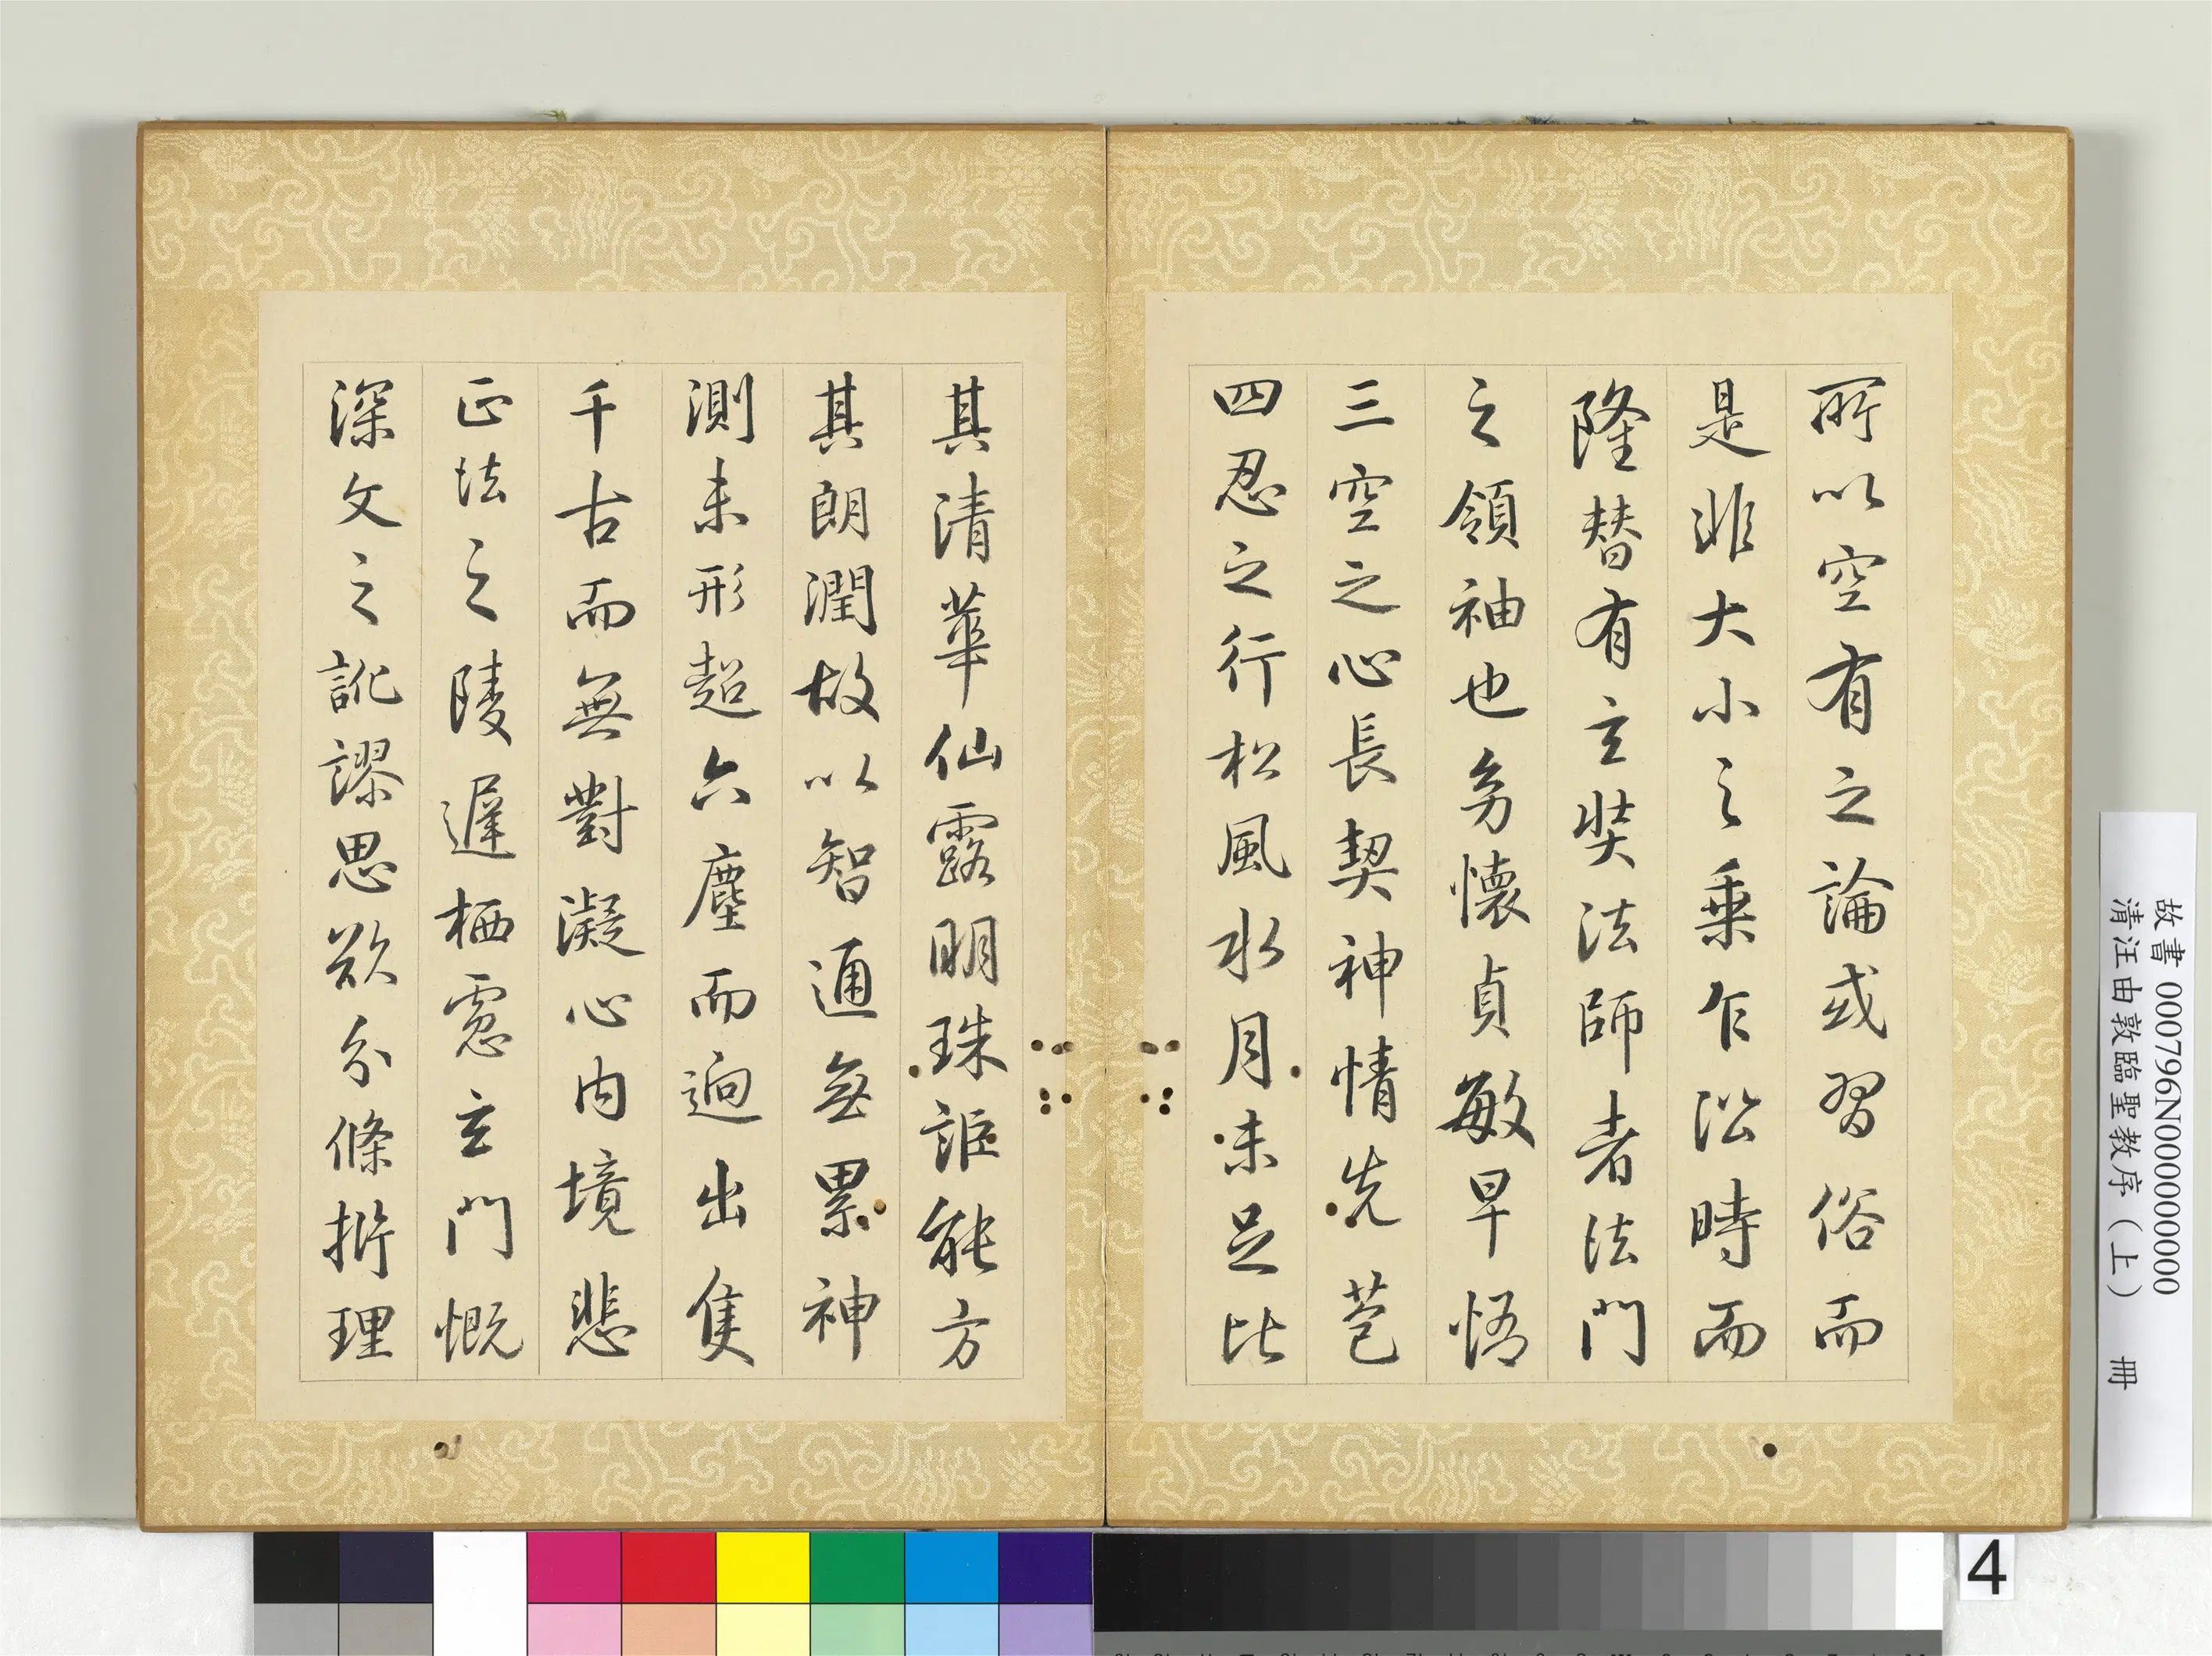 所以空有之論或習俗而
是非大小之乘乍沿時而
隆替有玄奘法師者法門
之領袖也幼懷貞敏早悟
三空之心長契神情先苞
四忍之行松風水月未足比
其清華仙露明珠詎能方
其朗潤故以智通無累神
測未形超六塵而迥出隻
千古而無對凝心內境悲
正法之陵遲栖慮玄門慨
深文之訛謬思欲分條析理
故書 000796N000000000
清汪由敦臨聖教序（上） 冊
4